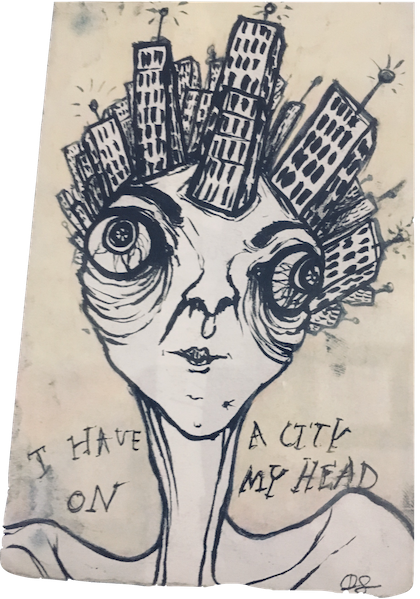 I HAVE A CITY
ON MY HEAD